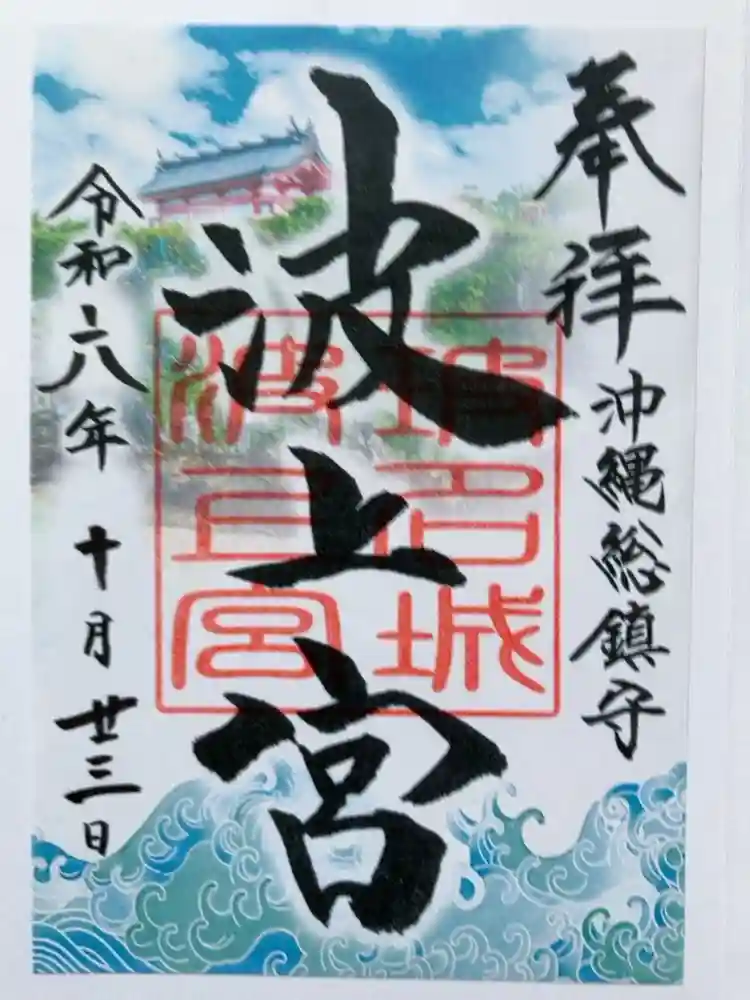 奉拝
沖縄総鎮守
波上宮
波上宮
令和六年 十月 廿三日